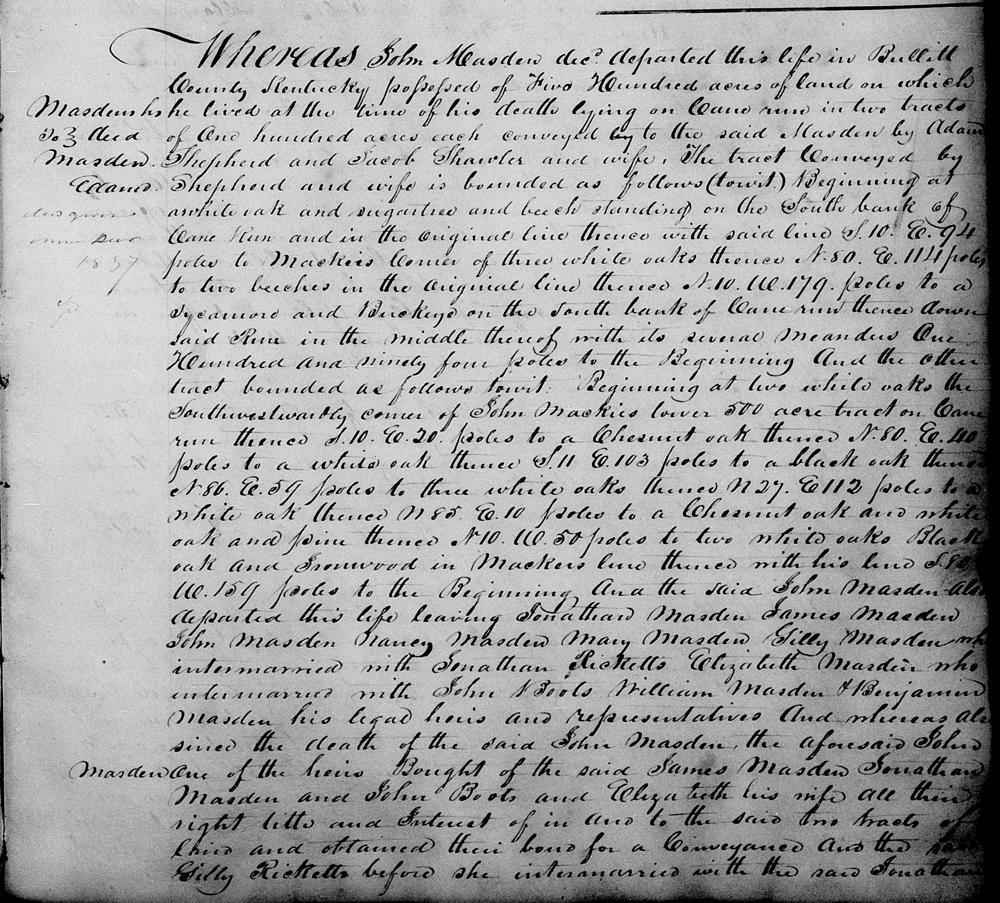 Whereas John Masden dec.d departed this life in Bullitt
County Kentucky possessed of Two Hundred acres of land on which
Masdens hs he lived at the time of his death lying on Cane run in two tracts
To } deed of One hundred acres each conveyed by to the said Masden by Adam
Masden. Shepherd and Jacob Shawler and wife. The tract Conveyed by
Exand. Shepherd and wife is bounded as follows (towit.) Beginning at
a white oak and sugartree and beech standing on the South bank of
Cane Run and in the original line thence with said line S.10. E. 94
1837 poles to Mackers Corner of three white oaks thence N.80. E. 114 poles
to two beeches in the original line thence N.10. W. 179. poles to a
Sycamore and Buckeye on the South bank of Cane run thence down
said Run in the middle thereof with its several meanders One
Hundred and ninety four poles to the Beginning And the other
tract bounded as follows towit. Beginning at two white oaks the
Southwestwardly corner of John Mackies lower 500 acre tract on Cane
run thence S.10. E. 20. poles to a Chesnut oak thence N.80. E. 40
poles to a white oak thence S.11 E. 103 poles to a black oak thence
N.86. E. 59 poles to three white oaks thence N 27. E 112 poles to a
white oak thence N 85. E. 10 poles to a Chesnut oak and white
oak and pine thence N 10. W. 50 poles to two white oaks Black
oak and Ironwood in Mackers line thence with his line S. 80
W. 159 poles to the Beginning And the said John Masden also
departed this life leaving Jonathan Masden James Masden
John Masden Nancy Masden Mary Masden Gilly Masden who
intermarried with Jonathan Ricketts Elizabeth Masden who
intermarried with John Boots William Masden & Benjamin
Masden his legal heirs and representatives And whereas also
since the death of the said John Masden, the aforesaid John
Masden One of the heirs Bought of the said James Masden Jonathan
Masden and John Boots and Elizabeth his wife all their
right title and Interest of in and to the said two tracts of
land and obtained their bond for a Conveyance And the said
Gilly Ricketts before she intermarried with the said Jonathan